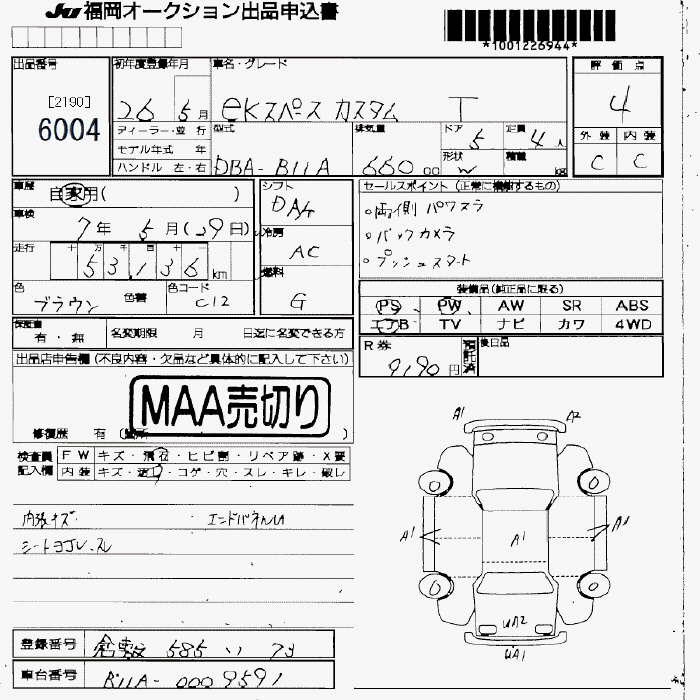 JU 福岡オークション出品申込書
*1001226944*
出品番号 初年度登録年月 車名・グレード 評価点
[2190]
6004
26 5月 eKスペース カスタム T 4
ディーラー・並行 型式 排気量 ドア 5 定員 4人 外装 内装
モデル年式 年 形状 W 積載 kg C C
ハンドル 左・右 DBA-B11A 660 00
車歴 自家用( ) シフト DAt セールスポイント (正常に機能するもの)
車検 7年 5月(29日) 冷房 AC 。両側パワスラ
走行 十 万 千 百 十 53,136 km 。バックカメラ
燃料 G 。プッシュスタート
色 ブラウン 色替 色コード C12
装備品(純正品に限る)
PS PW AW SR ABS
エアB TV ナビ カワ 4WD
保証書 有・無 名変期限 月 日迄に名変できる方
R券 9190円 預託済 後日品
出品店申告欄(不良内容・欠品など具体的に記入して下さい)
MAA売切り
修復歴 有 (箇所 )
検査員記入欄 FW キズ・飛石・ヒビ割・リペア跡・X要
内装 キズ・汚れ・コゲ・穴・スレ・キレ・破レ
内張キズ エンドパネルU
A1 A2
A1 A1 A1
UA2
UA1
登録番号 倉敷 585 い 73
車台番号 B11A-0009591